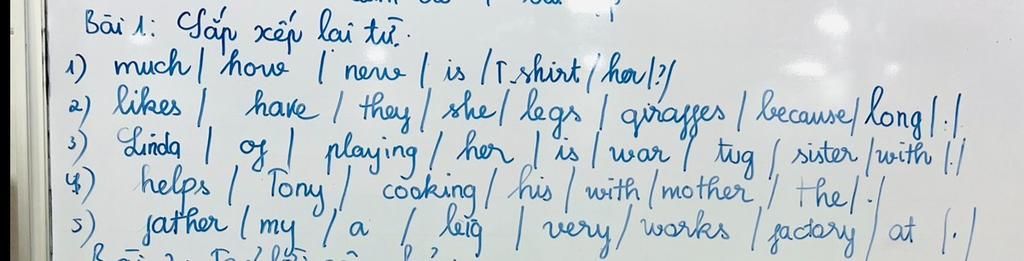 Bài 1: Sắp xếp lại từ.
1) much / how / new / is / T-shirt / her / ? /
2) likes / have / they / she / legs / giraffes / because / long / . /
3) Linda / of / playing / her / is / war / tug / sister / with / . /
4) helps / Tony / cooking / his / with / mother / the / . /
5) father / my / a / big / very / works / factory / at / . /